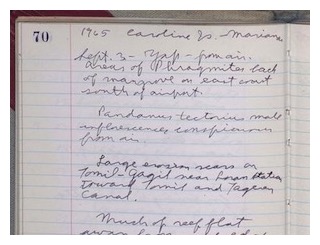 70
1965 Caroline Is. - Mariana
Sept. 3 - Yap - from air.
areas of Phragmites back
of mangrove on east coast
south of airport.
Pandanus tectorius male
inflorescences conspicuous
from air.
Large erosion scars on
Tomil-Gagil near Loran station
toward Tomil and Tageren
Canal.
Much of reef flat
away from